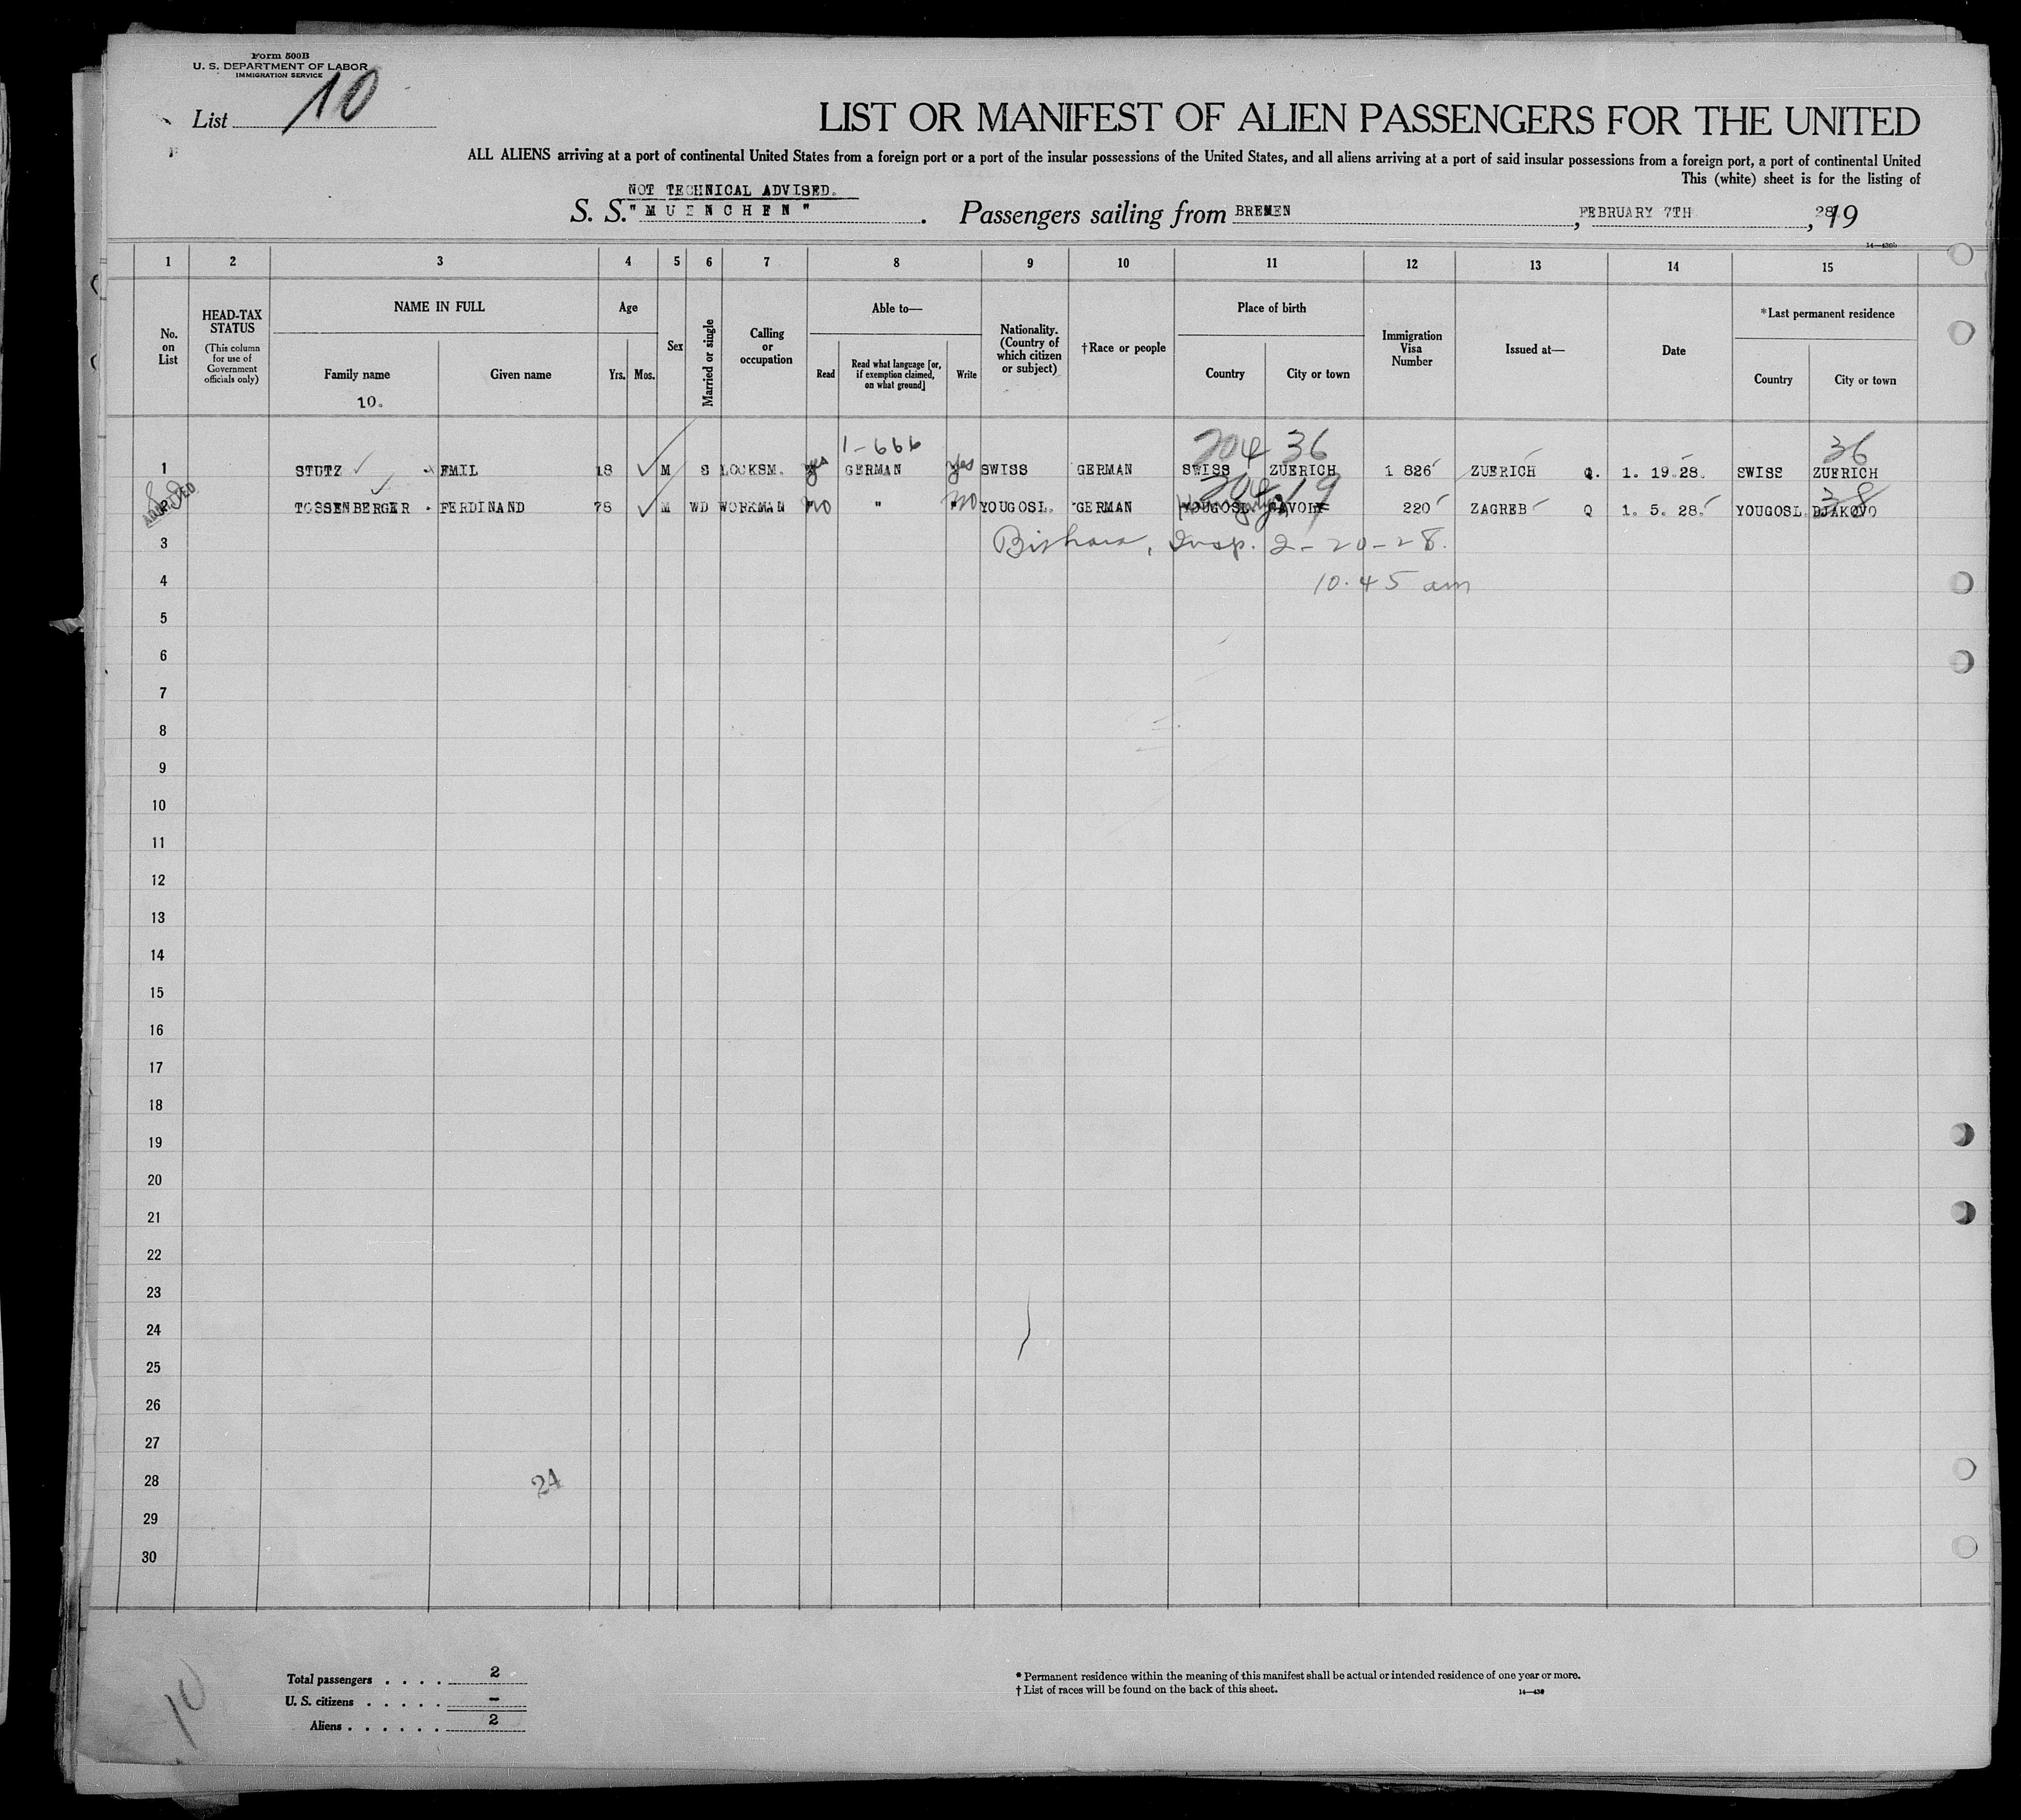 Form 500B
U. S. DEPARTMENT OF LABOR
IMMIGRATION SERVICE
List 10
LIST OR MANIFEST OF ALIEN PASSENGERS FOR THE UNITED
ALL ALIENS arriving at a port of continental United States from a foreign port or a port of the insular possessions of the United States, and all aliens arriving at a port of said insular possessions from a foreign port, a port of continental United
This (white) sheet is for the listing of
NOT TECHNICAL ADVISED.
S. S. "MUENCHEN". Passengers sailing from BREMEN, FEBRUARY 7TH, 28 19
14—430b
1 2 3 4 5 6 7 8 9 10 11 12 13 14 15
No. on List
HEAD-TAX STATUS
(This column for use of Government officials only)
NAME IN FULL
Family name
Given name
10.
Age
Yrs. Mos.
Sex
Married or single
Calling or occupation
Able to—
Read
Read what language [or, if exemption claimed, on what ground]
Write
Nationality. (Country of which citizen or subject)
†Race or people
Place of birth
Country
City or town
Immigration Visa Number
Issued at—
Date
*Last permanent residence
Country
City or town
1-666 204 36 36
1 STUTZ EMIL 18 M S LOCKSM. yes GERMAN yes SWISS GERMAN SWISS ZUERICH 1 826 ZUERICH Q. 1. 19.28. SWISS ZUERICH
204 19 38
2 TOSSENBERGER FERDINAND 78 M WD WORKMAN no " no YOUGOSL. GERMAN YOUGOSL. 220 ZAGREB Q 1. 5. 28. YOUGOSL. DJAKOVO
ADMITTED
3 Insp. 2-20-28.
4 10.45 am
5
6
7
8
9
10
11
12
13
14
15
16
17
18
19
20
21
22
23
24
25
26
27
28 24
29
30
10
Total passengers . . . . 2
U. S. citizens . . . . . –
Aliens . . . . . . 2
* Permanent residence within the meaning of this manifest shall be actual or intended residence of one year or more.
† List of races will be found on the back of this sheet.
14—430